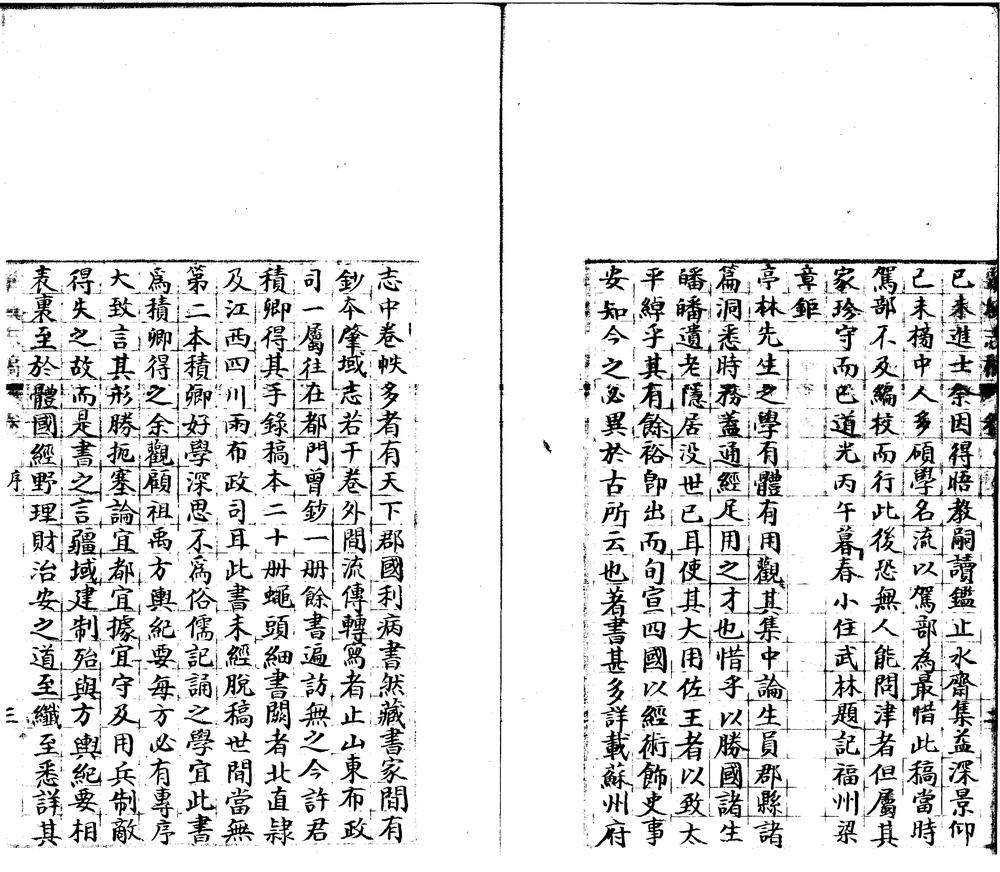 已來進士祭因得晤教嗣讀鑑止水齋集益深景仰
己未榜中人多碩學名流以駕部為最惜此稿當時
駕部不及編校而行此後恐無人能問津者但屬其
家珍守而已道光丙午暮春小住武林題記福州梁
章鉅
亭林先生之學有體有用觀其集中論生員郡縣諸
篇洞悉時務蓋通經足用之才也惜乎以勝國諸生
皤皤遺老隱居没世已耳使其大用佐王者以致太
平綽乎其有餘裕卽出而旬宣四國以經術飾吏事
安知今之必異於古所云也著書甚多詳載蘇州府
志中卷帙多者有天下郡國利病書然藏書家間有
鈔本肇域志若干卷外間流傳轉寫者止山東布政
司一屬往在都門曾鈔一册餘書遍訪無之今許君
積卿得其手錄稿本二十册蠅頭細書闕者北直隷
及江西四川兩布政司耳此書未經脫稿世間當無
第二本積卿好學深思不爲俗儒記誦之學宜此書
爲積卿得之余觀顧祖禹方輿紀要每方必有專序
大致言其形勝扼塞論宜都宜據宜守及用兵制敵
得失之故而是書之言疆域建制殆與方輿紀要相
表裏至於體國經野理財治安之道至纖至悉詳其
序
三